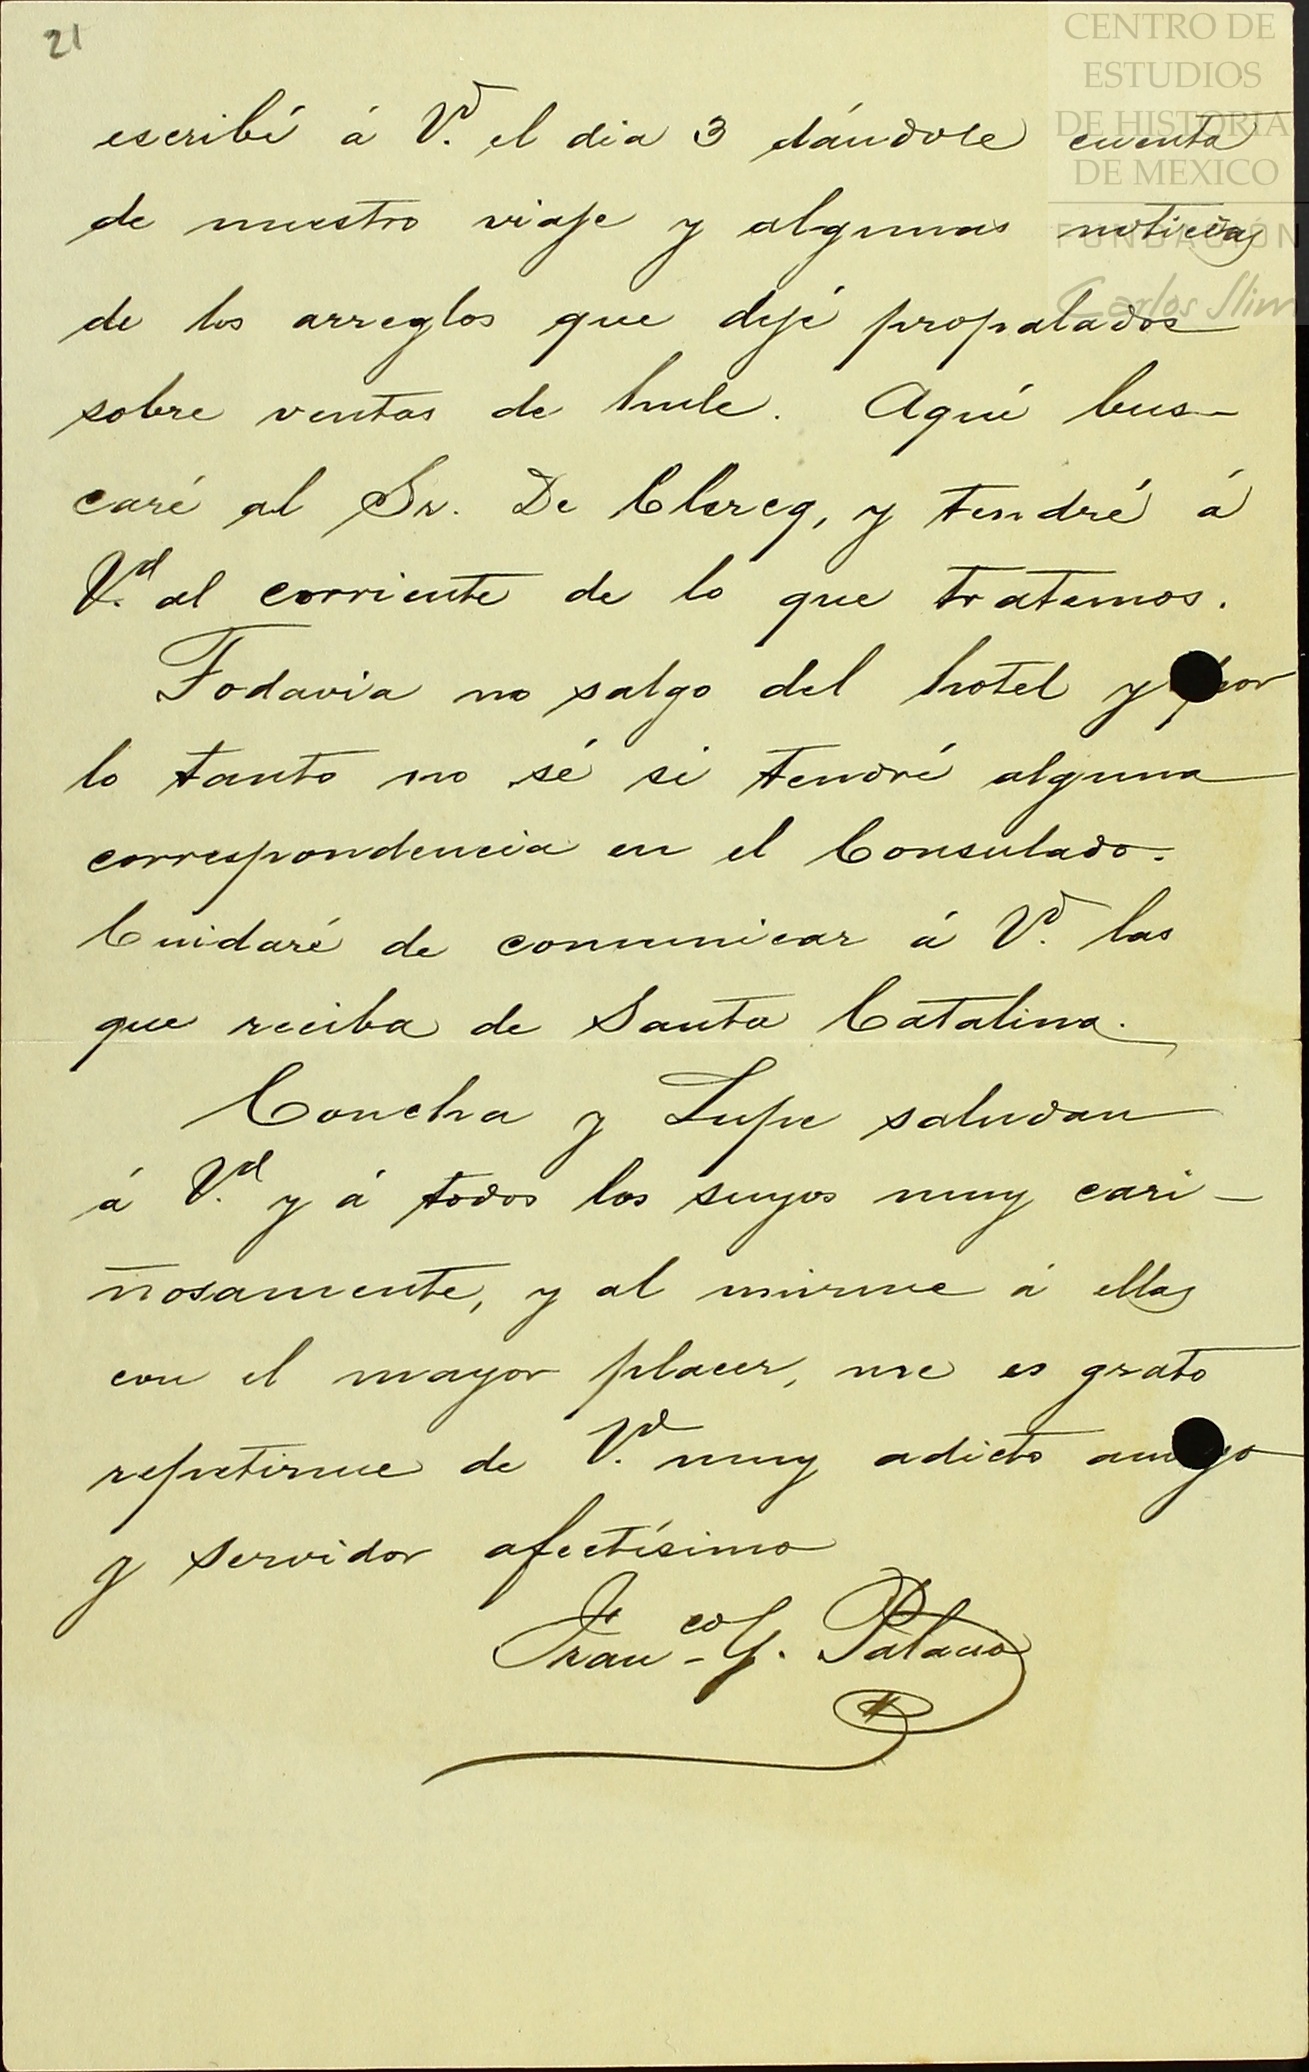 21
CENTRO DE
ESTUDIOS
DE HISTORIA
DE MEXICO
FUNDACIÓN
Carlos Slim
escribí á V.d el dia 3 dándole cuenta
de nuestro viaje y algunas noticias
de los arreglos que dejé propalados
sobre ventas de hule. Aquí bus-
caré al Sr. De Clercq, y tendré á
V.d al corriente de lo que tratemos.
Todavia no salgo del hotel y por
lo tanto no sé si tendré alguna
correspondencia en el Consulado.
Cuidaré de comunicar á V.d las
que reciba de Santa Catalina.
Concha y Lupe saludan
á V.d y á todos los suyos muy cari-
ñosamente, y al unirme á ellas
con el mayor placer, me es grato
repetirme de V.d muy adicto amigo
y servidor afectísimo
Fran.co G. Palacio